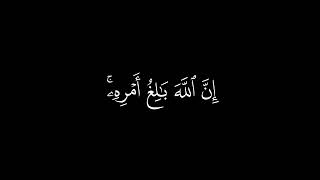 إِنَّ ٱللَّهَ بَٰلِغُ أَمۡرِهِۦۚ